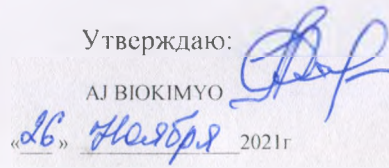 Утверждаю:
AJ BIOKIMYO
«26» Ноября 2021г